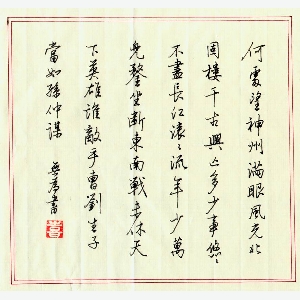 何處望神州滿眼風光北
固樓千古興亡多少事悠〻
不盡長江滾〻流年少萬
兜鍪坐斷東南戰未休天
下英雄誰敵手曹劉生子
當如孫仲謀 書